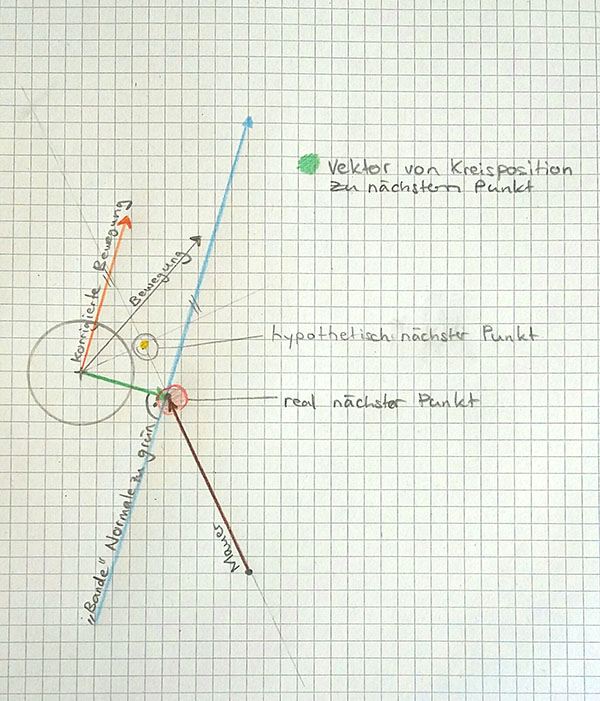 Vektor von Kreisposition
zu nächstem Punkt
Korrigierte Bewegung
Bewegung
hypothetisch nächster Punkt
real nächster Punkt
„Bande“ Normale zu grün
Mauer